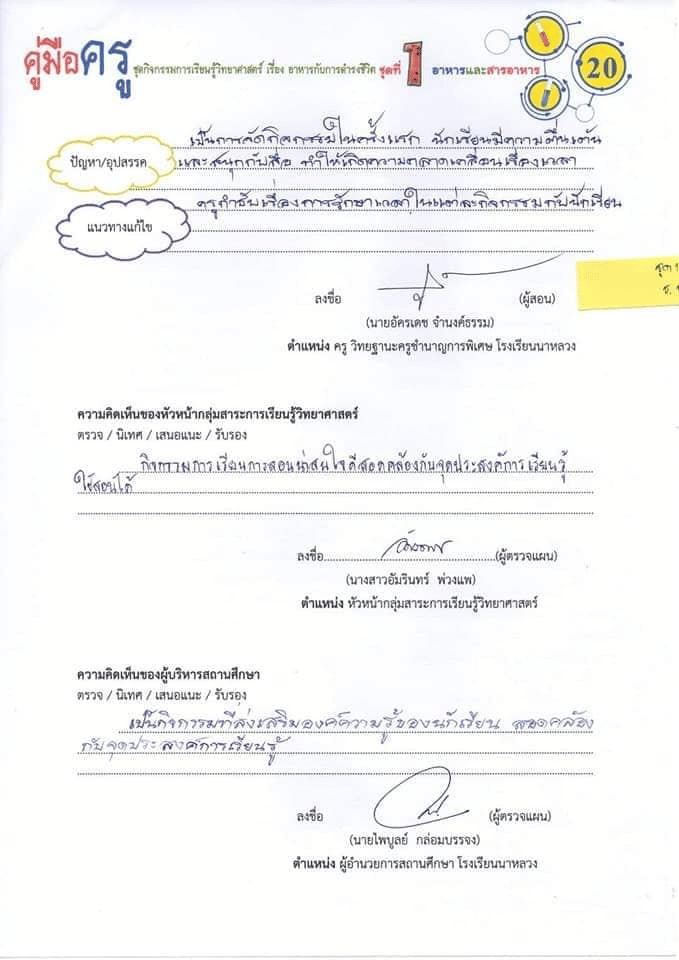 คู่มือครู ชุดกิจกรรมการเรียนรู้วิทยาศาสตร์ เรื่อง อาหารกับการดำรงชีวิต ชุดที่ 1 อาหารและสารอาหาร 20
เป็นการจัดกิจกรรมในครั้งแรก นักเรียนมีความตื่นเต้น
ปัญหา/อุปสรรค และสนุกกับสื่อ ทำให้เกิดความคลาดเคลื่อนเรื่องเวลา
ครูกำชับเรื่องการรักษาเวลาในแต่ละกิจกรรมกับนักเรียน
แนวทางแก้ไข
ลงชื่อ (ผู้สอน)
(นายอัครเดช จำนงค์ธรรม)
ตำแหน่ง ครู วิทยฐานะครูชำนาญการพิเศษ โรงเรียนนาหลวง
ความคิดเห็นของหัวหน้ากลุ่มสาระการเรียนรู้วิทยาศาสตร์
ตรวจ / นิเทศ / เสนอแนะ / รับรอง
กิจกรรมการเรียนการสอนน่าสนใจดีสอดคล้องกับจุดประสงค์การเรียนรู้
ใช้สอนได้
ลงชื่อ (ผู้ตรวจแผน)
(นางสาวอัมรินทร์ พ่วงแพ)
ตำแหน่ง หัวหน้ากลุ่มสาระการเรียนรู้วิทยาศาสตร์
ความคิดเห็นของผู้บริหารสถานศึกษา
ตรวจ / นิเทศ / เสนอแนะ / รับรอง
เป็นกิจกรรมที่ส่งเสริมองค์ความรู้ของนักเรียน สอดคล้อง
กับจุดประสงค์การเรียนรู้
ลงชื่อ (ผู้ตรวจแผน)
(นายไพบูลย์ กล่อมบรรจง)
ตำแหน่ง ผู้อำนวยการสถานศึกษา โรงเรียนนาหลวง